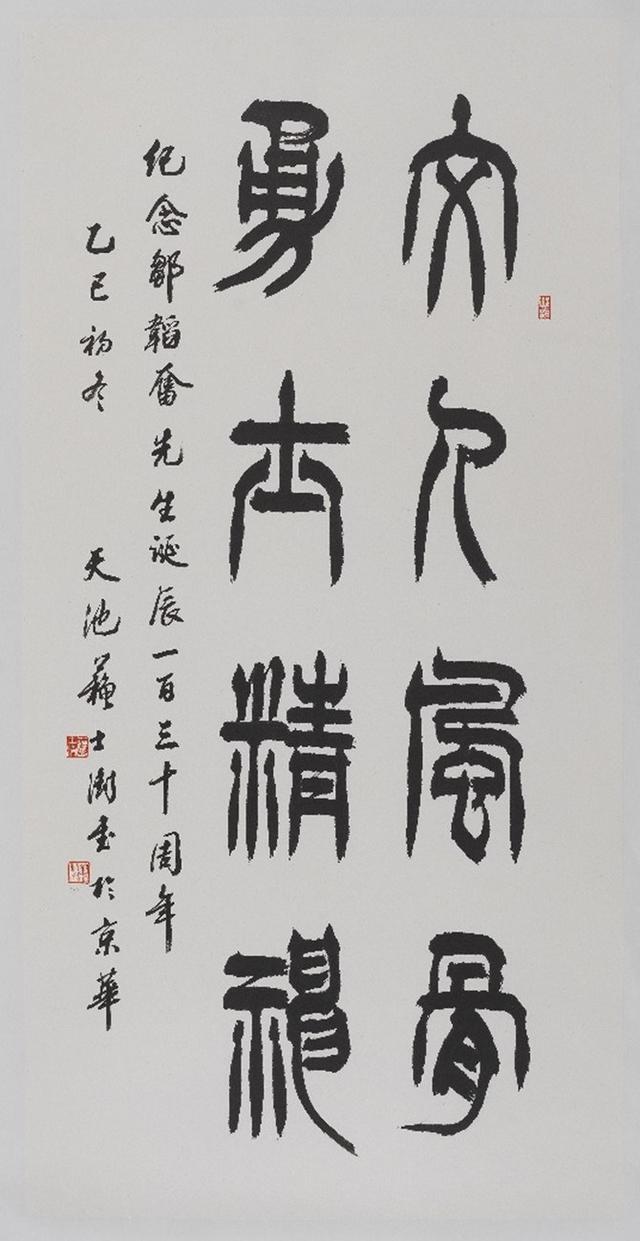 文人風骨
勇士精神
纪念鄒韜奮先生诞辰一百三十周年
乙巳初冬 天池蘇士澍書於京華